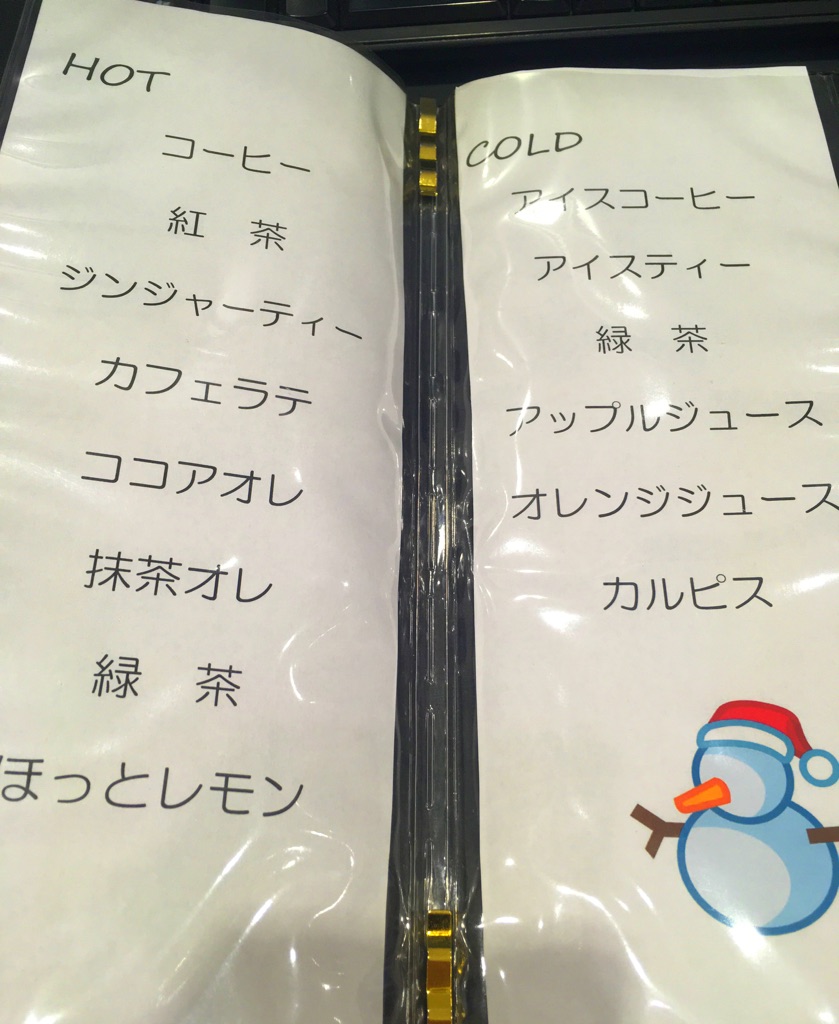 HOT
コーヒー
紅 茶
ジンジャーティー
カフェラテ
ココアオレ
抹茶オレ
緑 茶
ほっとレモン
COLD
アイスコーヒー
アイスティー
緑 茶
アップルジュース
オレンジジュース
カルピス